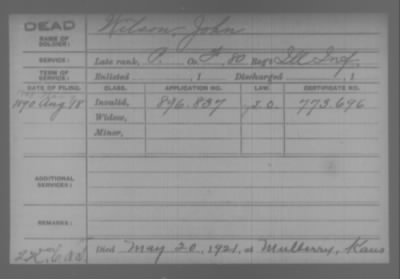 DEAD
NAME OF SOLDIER: Wilson, John
SERVICE: Late rank, P. Co. F, 80 Reg't Ill Inf.
TERM OF SERVICE: Enlisted , 1 Discharged , 1
DATE OF FILING. CLASS. APPLICATION NO. LAW. CERTIFICATE NO.
1890 Aug. 18 Invalid, 896.837 773.696
Widow,
Minor,
ADDITIONAL SERVICES:
REMARKS:
Died May 20, 1921, at Mulberry, Kans